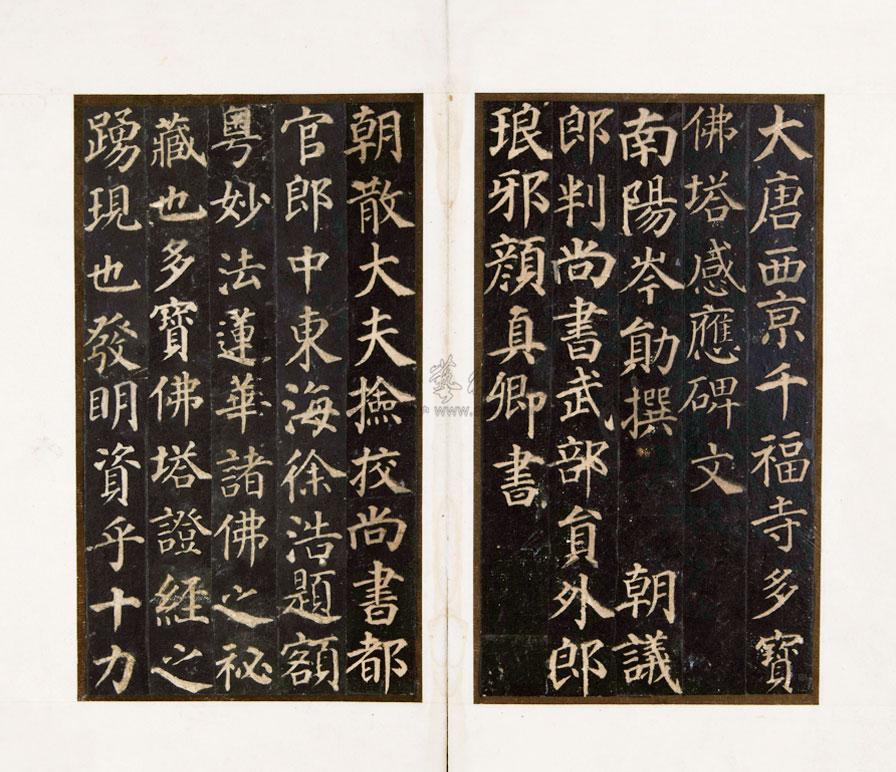 大唐西京千福寺多寶
佛塔感應碑文
南陽岑勛撰 朝議
郎判尚書武部貟外郎
琅邪顏真卿書
朝散大夫撿挍尚書都
官郎中東海徐浩題額
粵妙法蓮華諸佛之秘
藏也多寶佛塔證經之
踴現也發明資乎十力
藝
www.